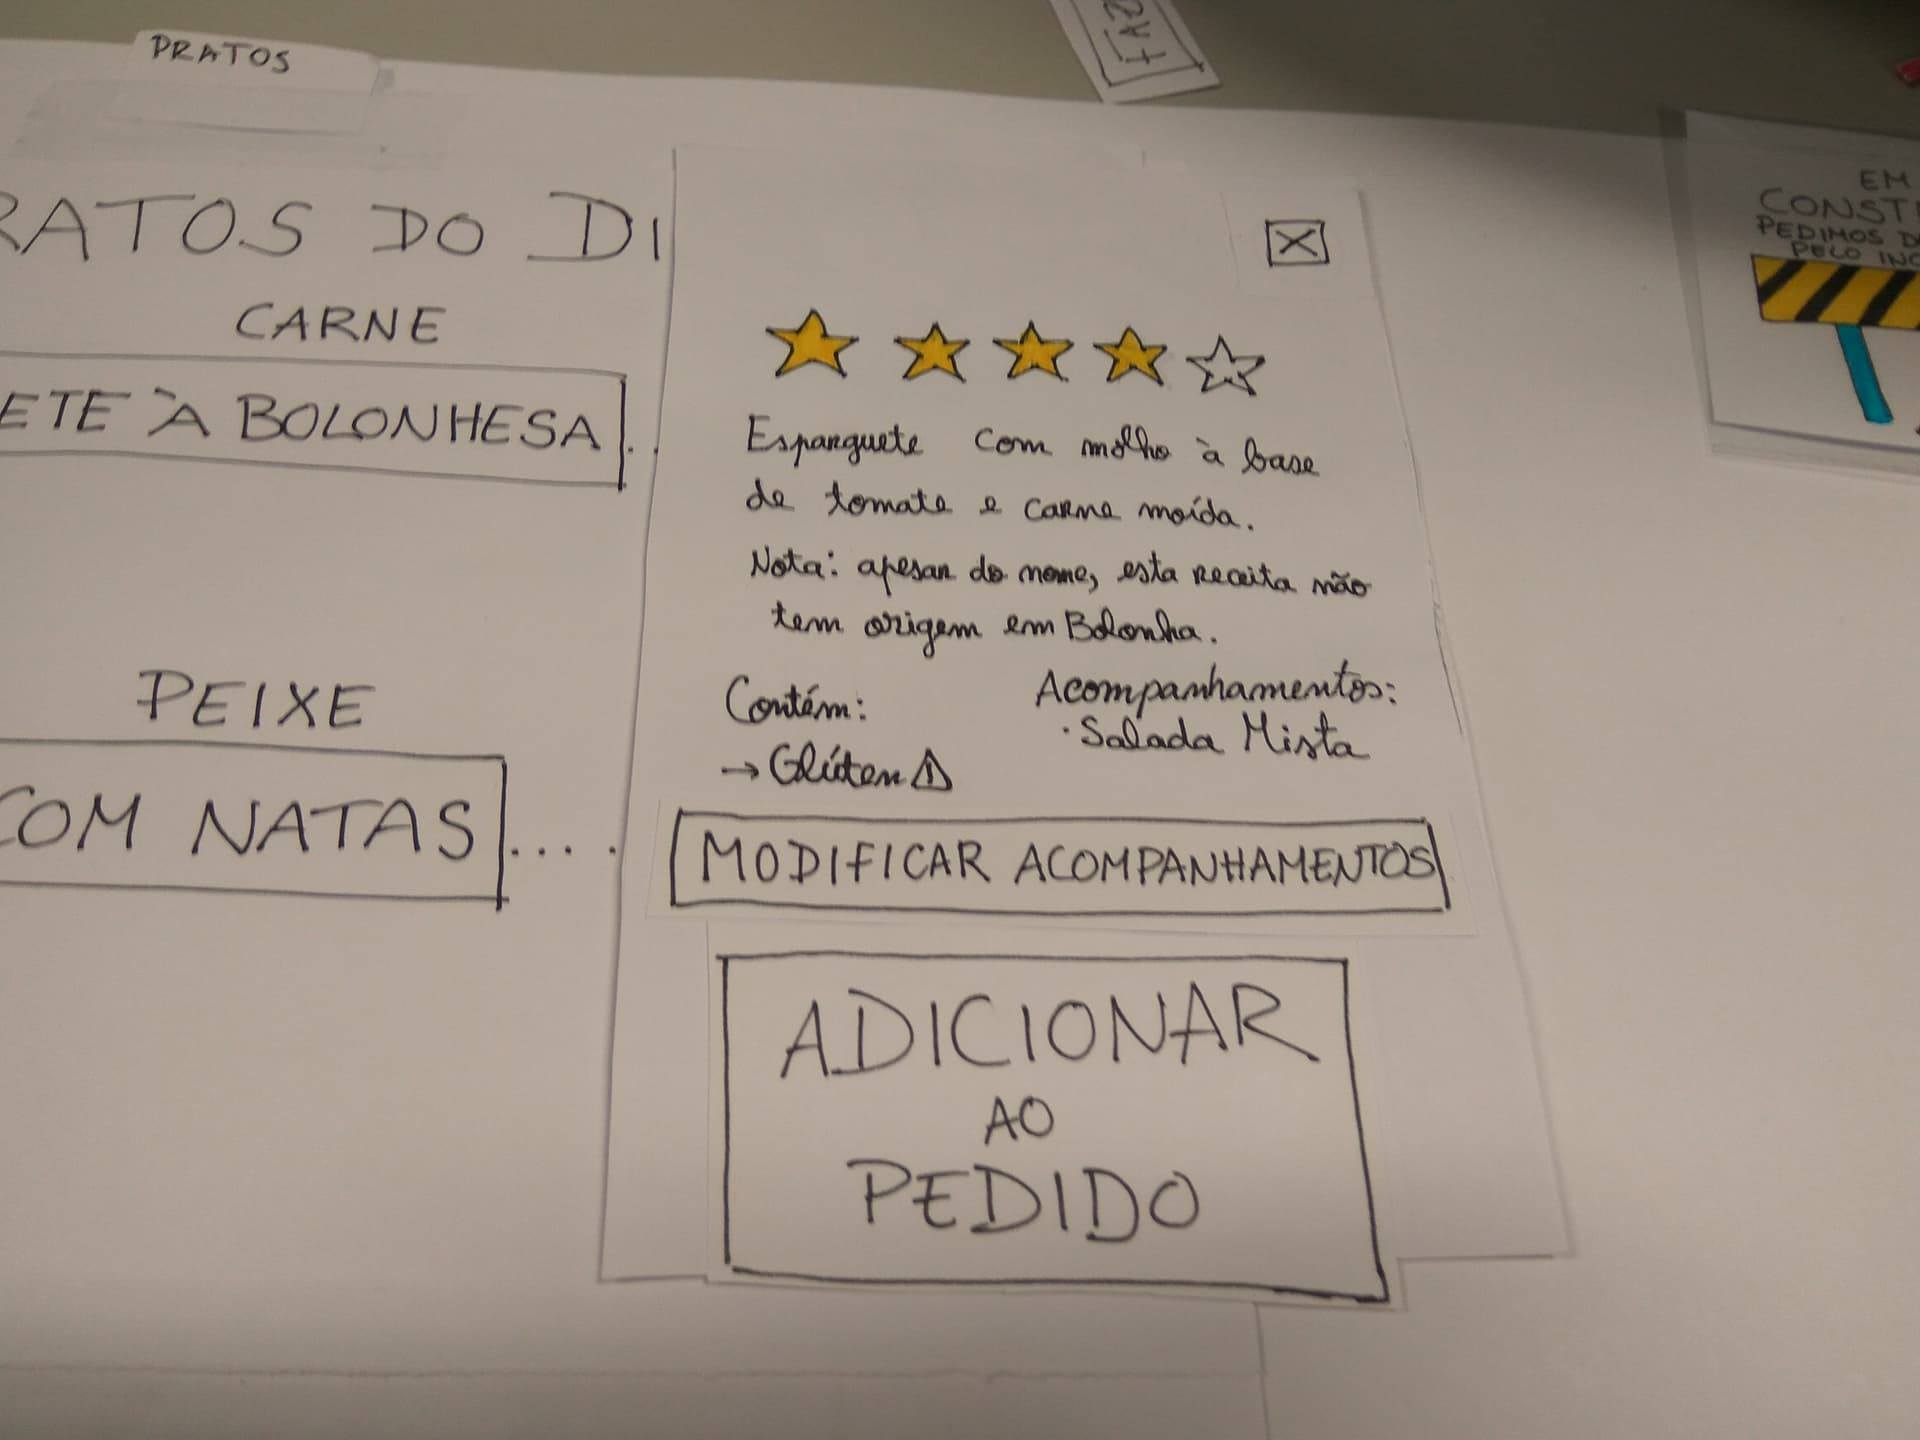 PRATOS
RATOS DO DI
CARNE
ETE À BOLONHESA
PEIXE
COM NATAS
Esparguete com molho à base
de tomate e carne moída.
Nota: apesar do nome, esta receita não
tem origem em Bolonha.
Contém:
→ Glúten ⚠
Acompanhamentos:
· Salada Mista
MODIFICAR ACOMPANHAMENTOS
ADICIONAR
AO
PEDIDO
EM
CONST
PEDIMOS D
PELO INC